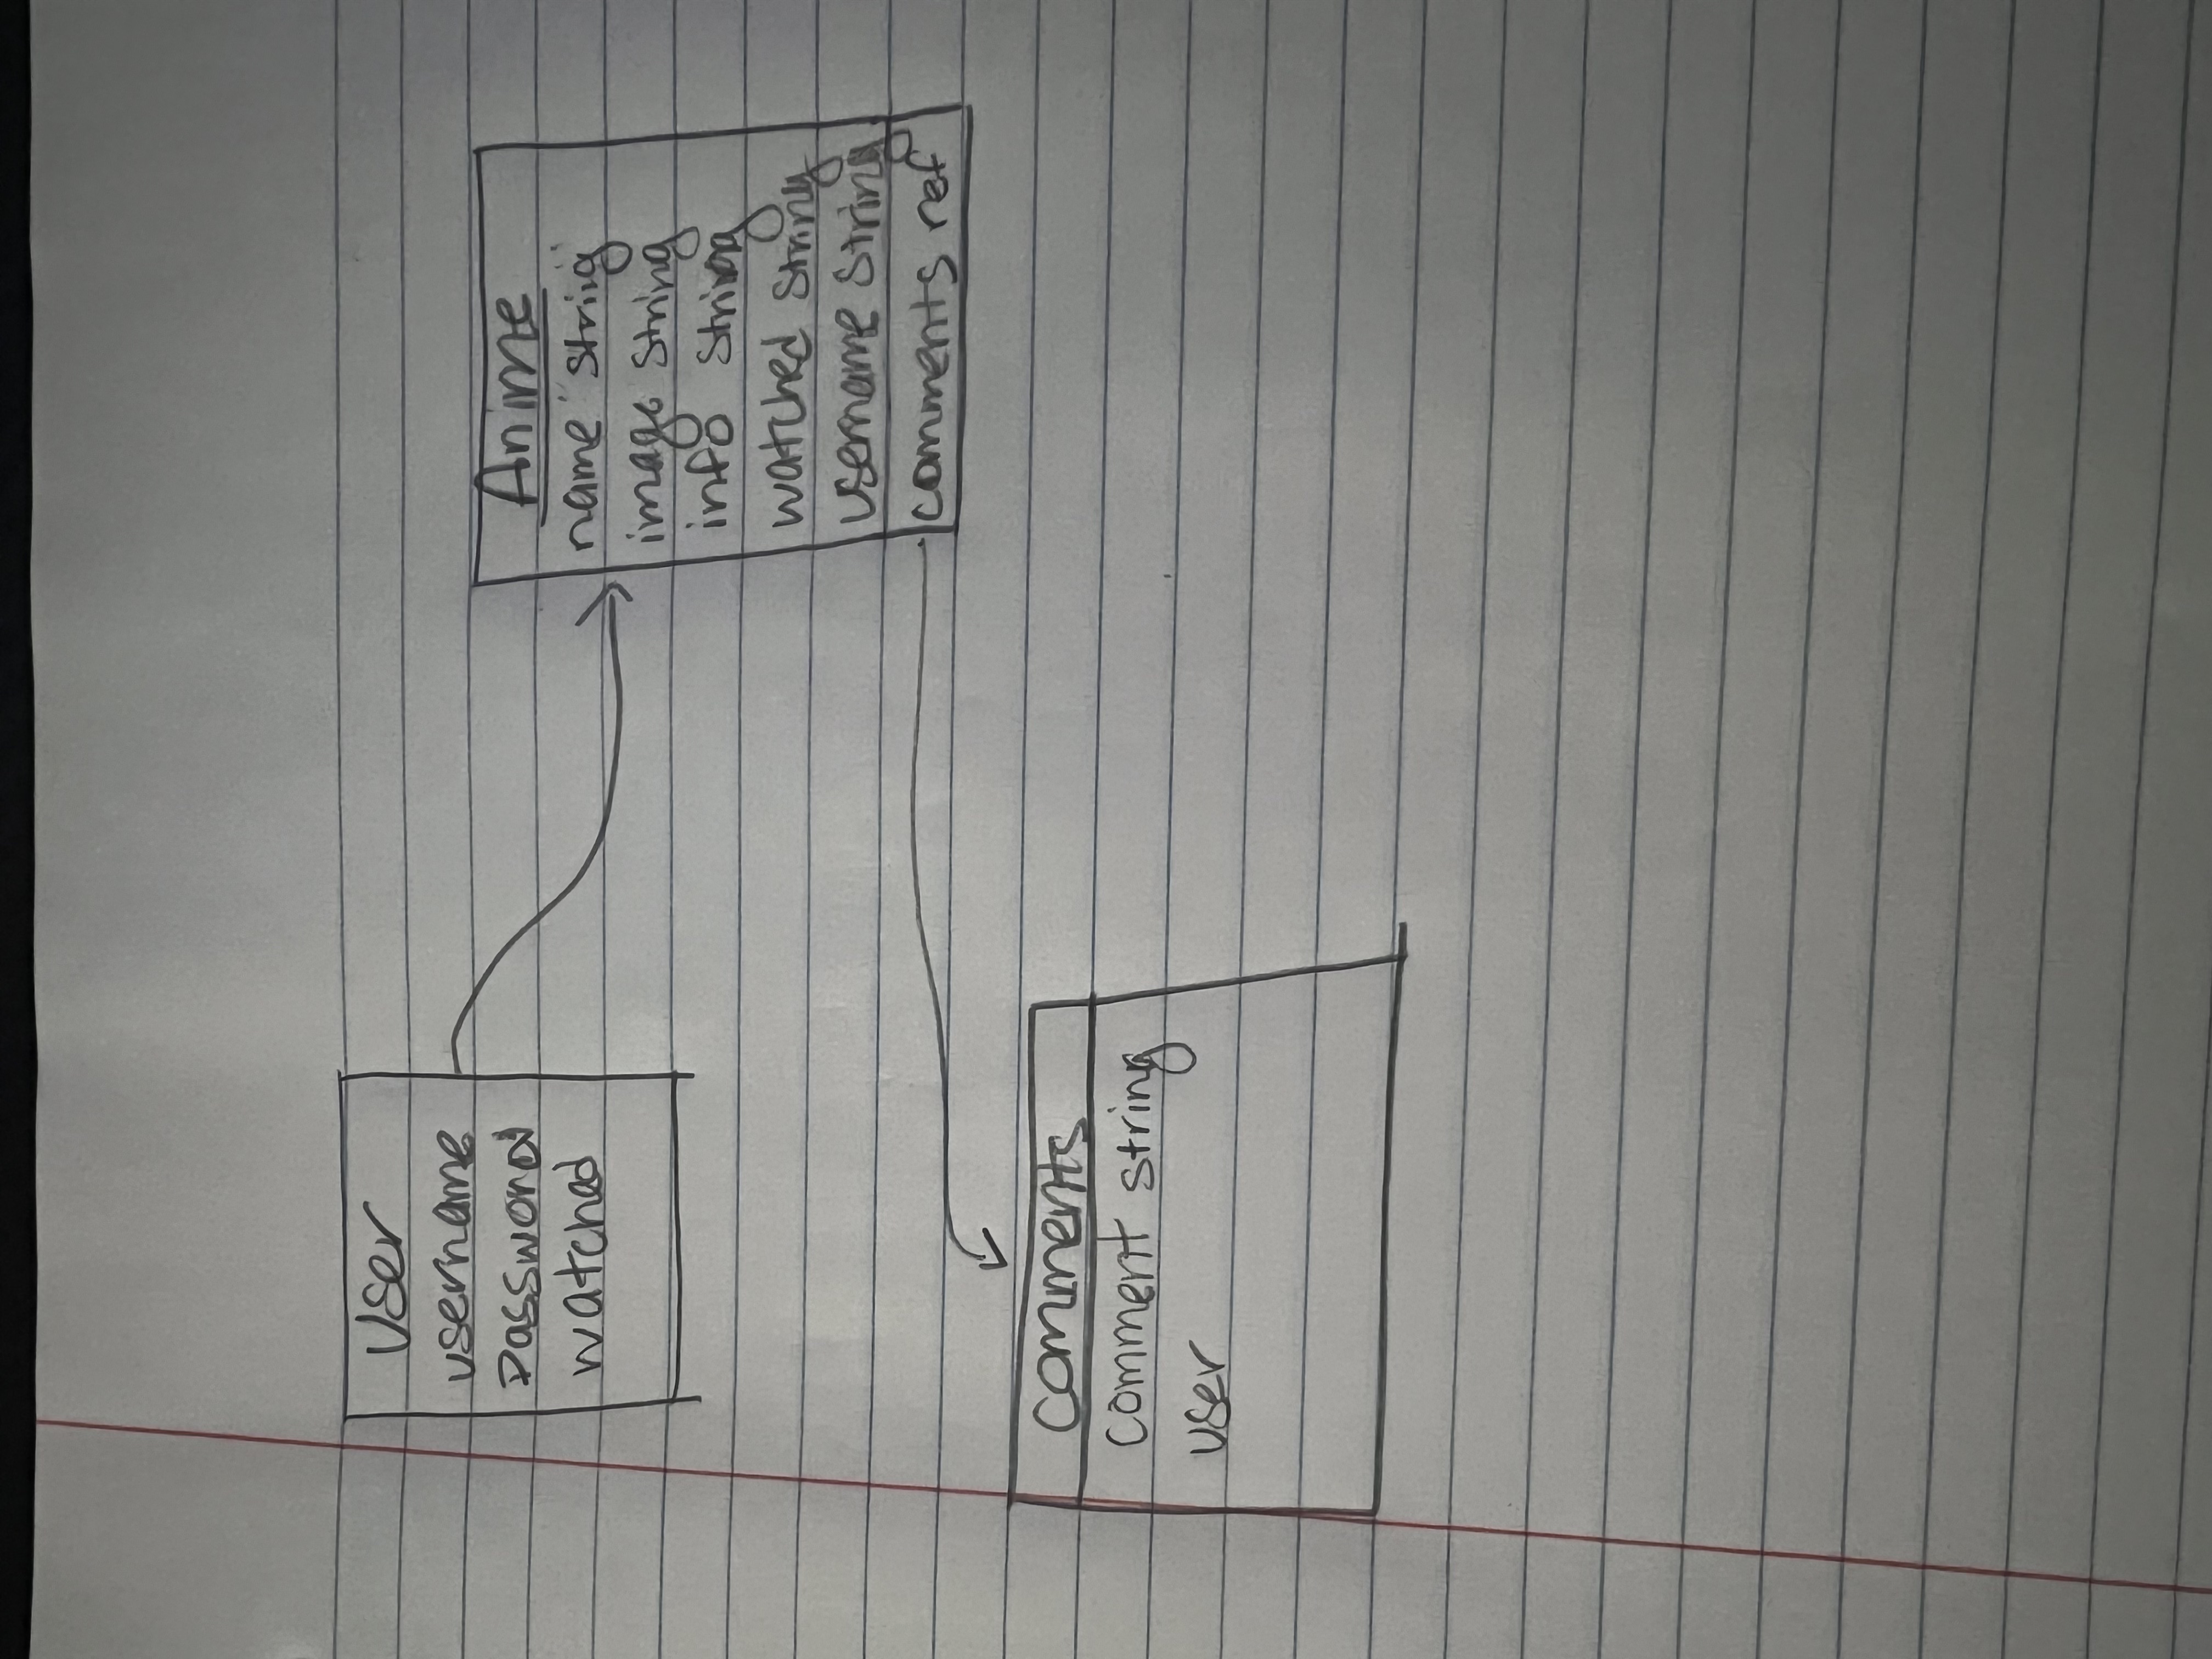 User
username
password
watched
Anime
name string
image string
info string
watched string
username string
comments ref
comments
comment string
user